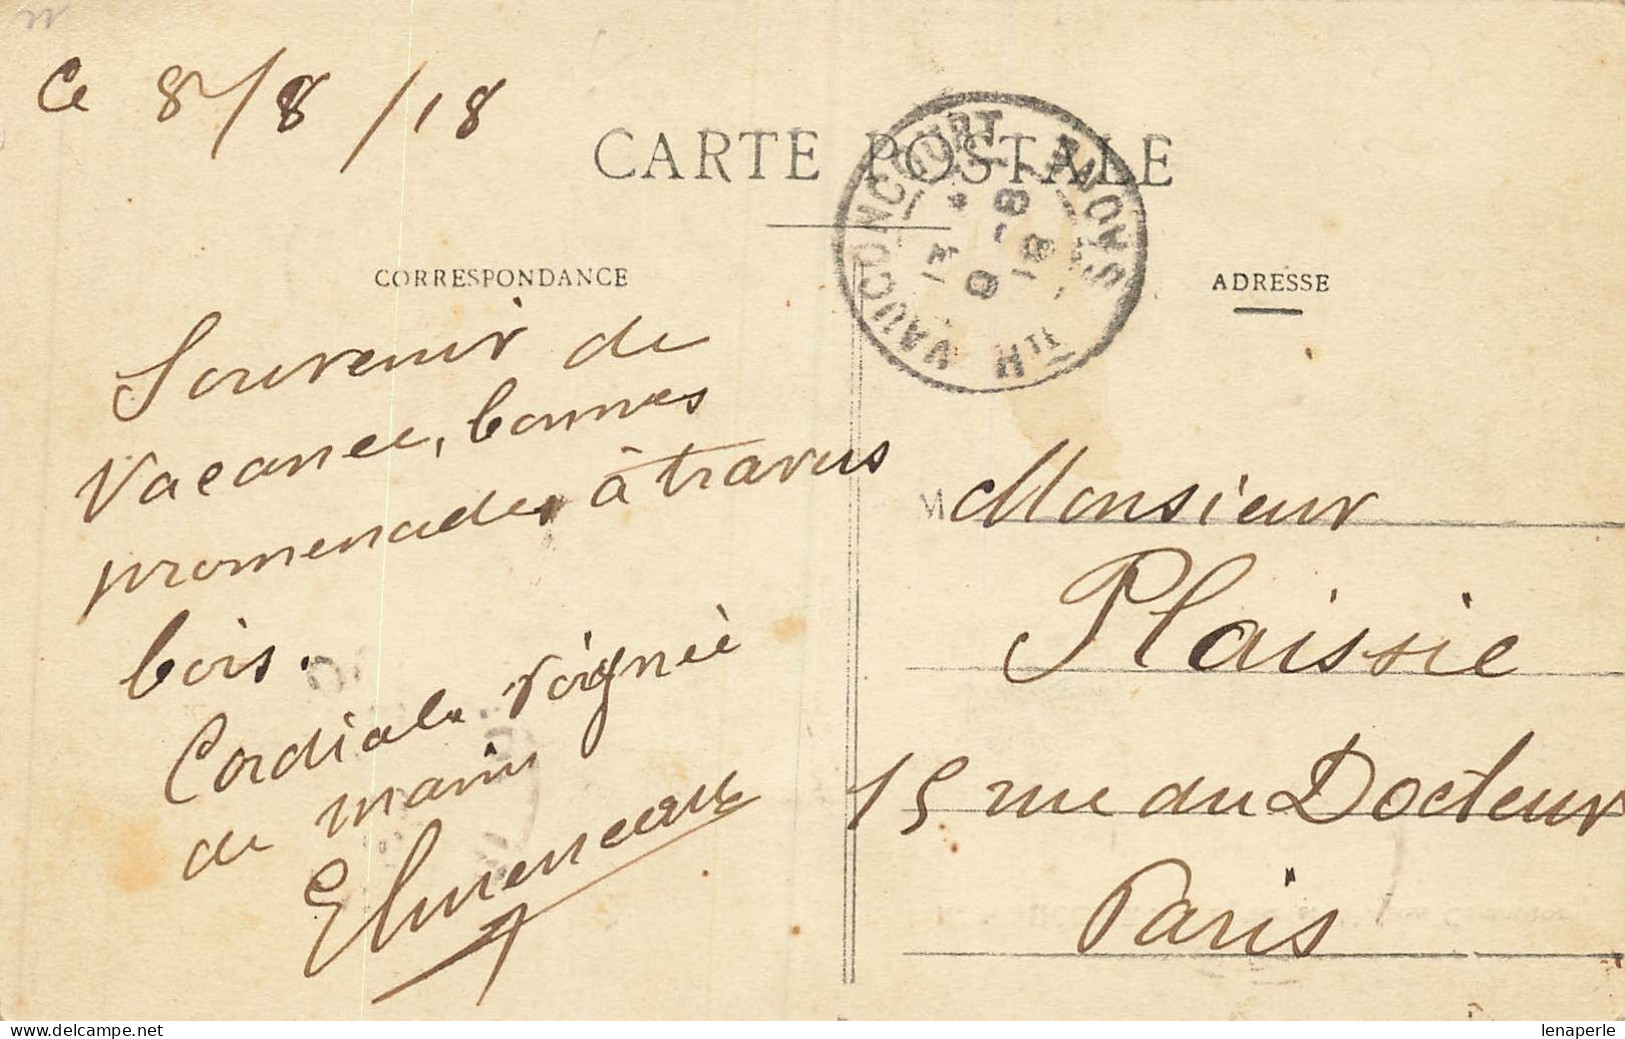 Ce 8/8/18
CARTE POSTALE
VAUCONCOURT
Hte SAONE
13
9-8
18
CORRESPONDANCE
ADRESSE
Souvenir de
Vacance, bonnes
promenades à travers
bois.
Cordiale Poignée
de main
M
Monsieur
Plaissie
15 rue du Docteur
Paris
lenaperle